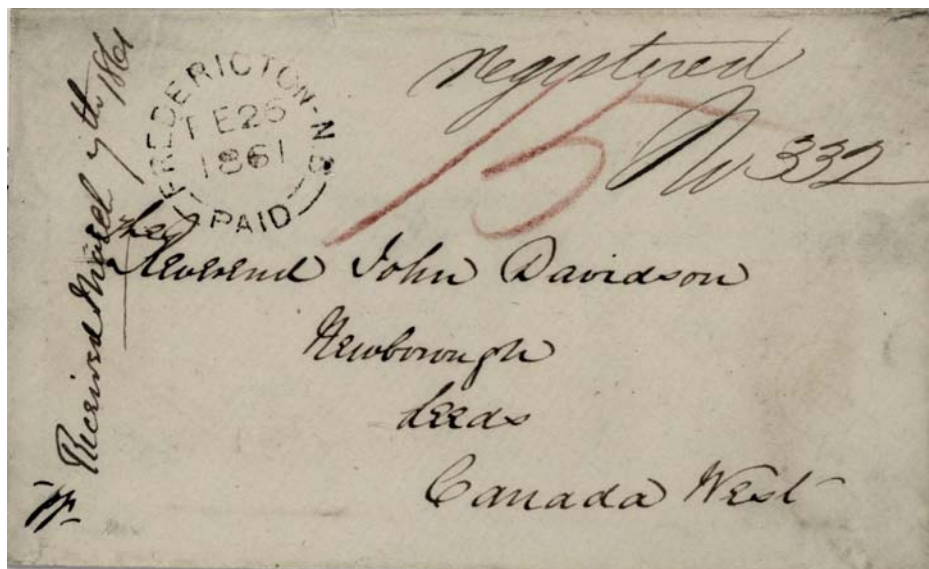 Received March 7th 1861
FREDERICTON-N.B
FE26
1861
PAID
registered
15
No 332
The
Reverend John Davidson
Newborough
Leeds
Canada West